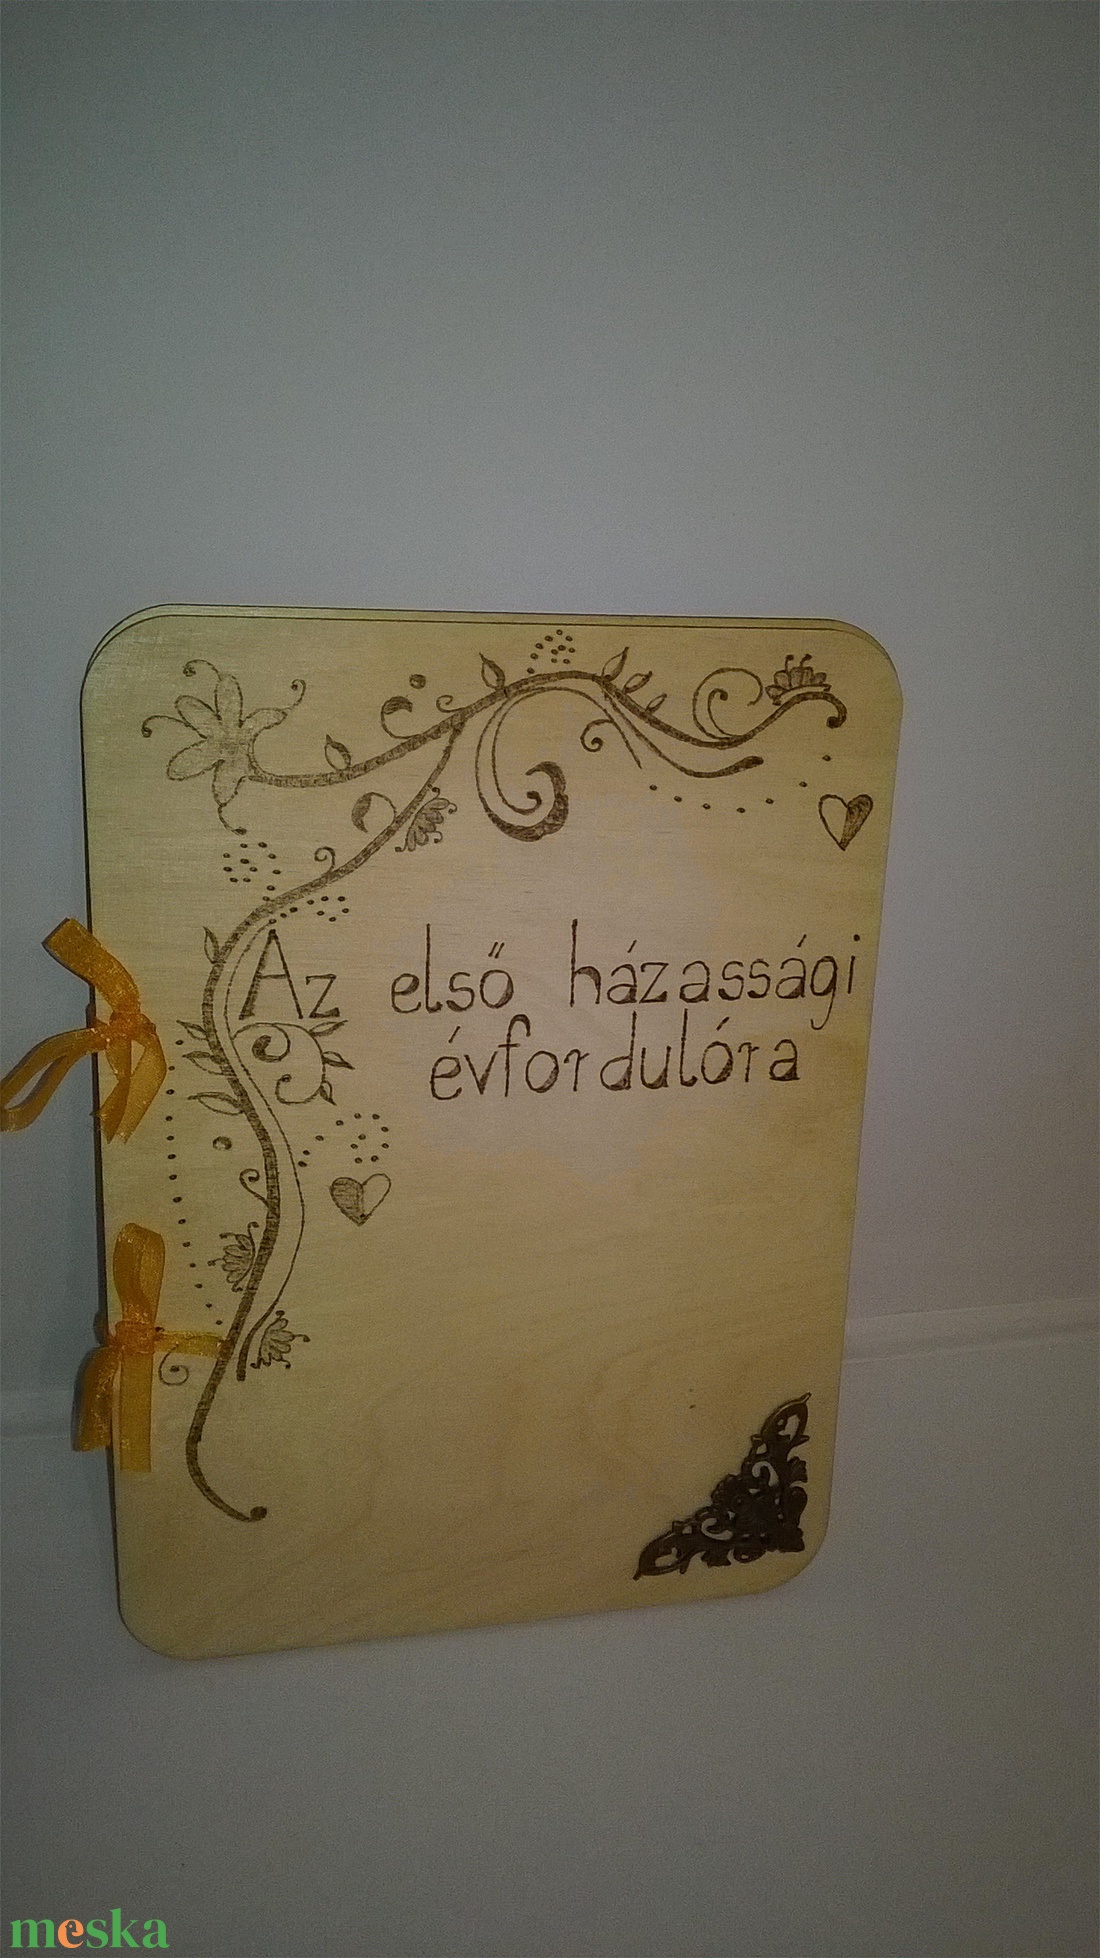 Az első házassági
évfordulóra
meska